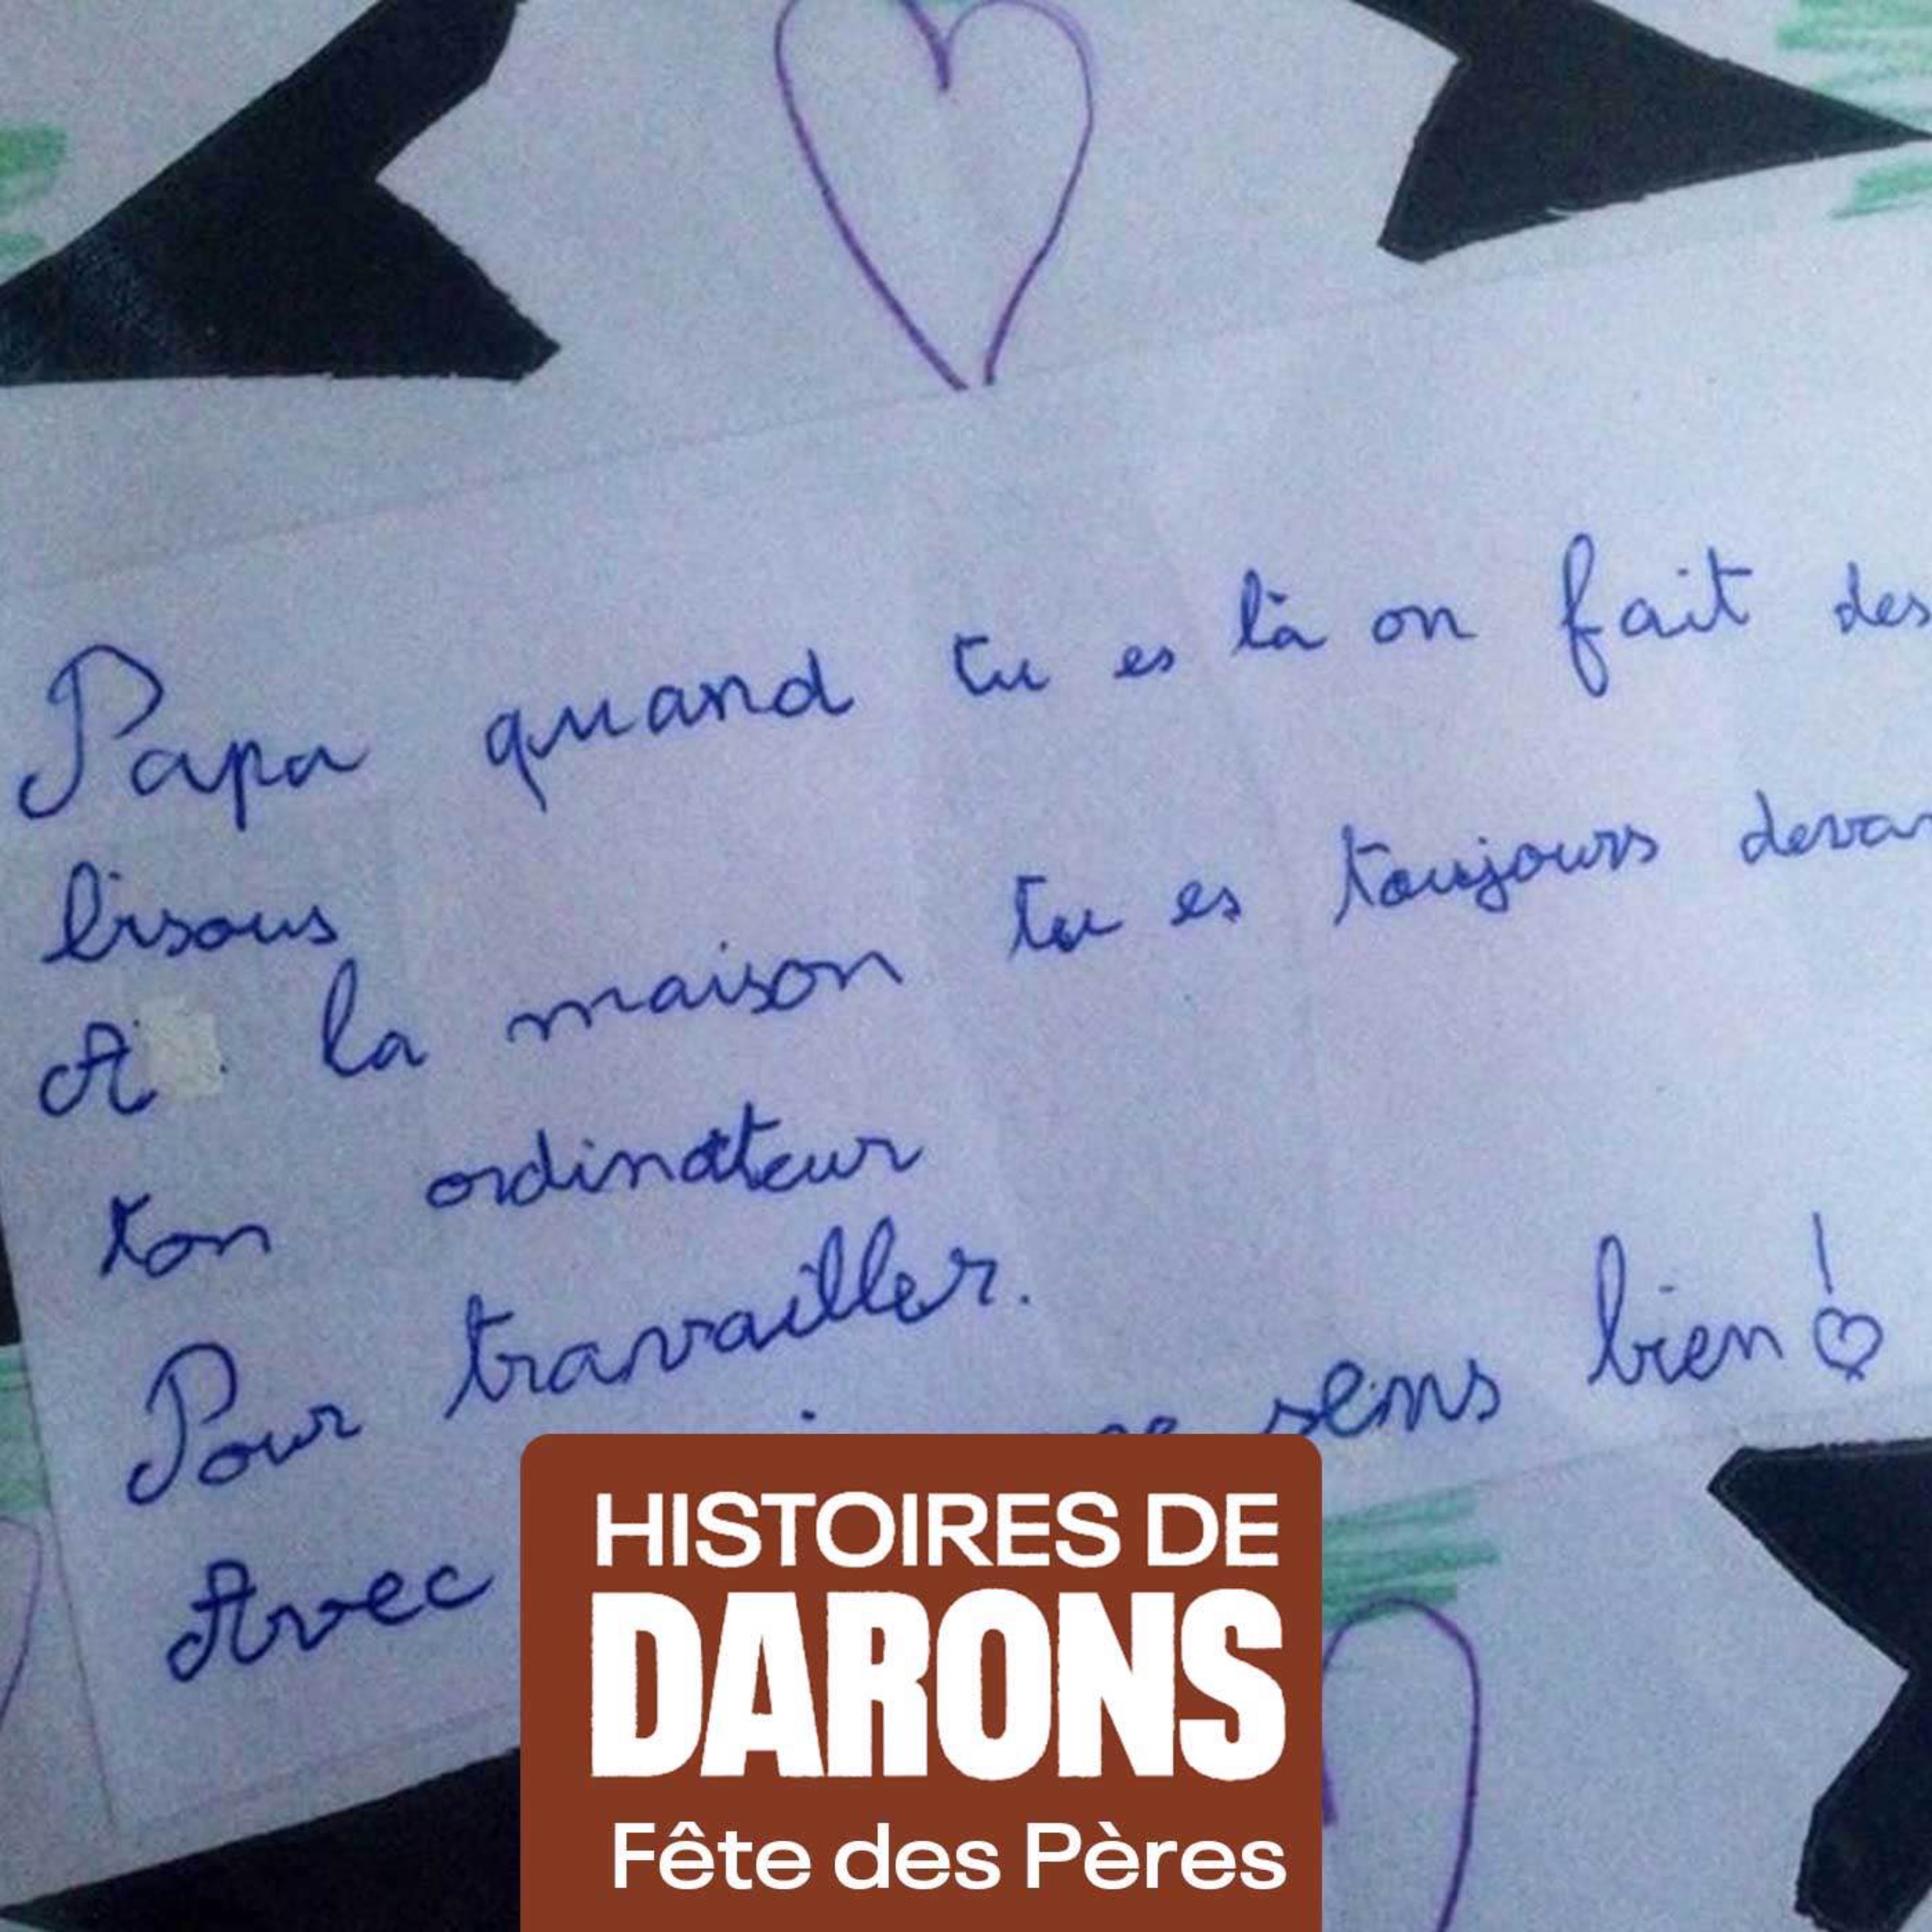 Papa quand tu es là on fait des
bisous
A la maison tu es toujours
ton ordinateur
Pour travailler.
Avec sens bien !
HISTOIRES DE
DARONS
Fête des Pères